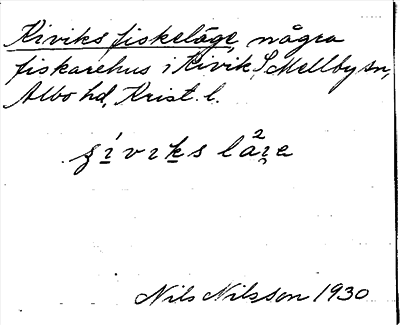 Kiviks fiskeläge, några
fiskarehus i Kivik, S Mellby sn,
Albo hd, Krist. l.
Nils Nilsson 1930